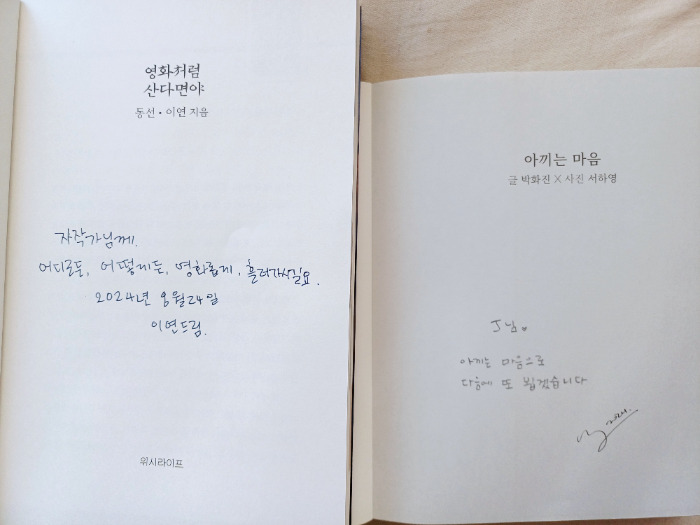 영화처럼
산다면야
동선·이연 지음
자작가님께.
어디로든, 어떻게든, 영화롭게, 흘러가실길요.
2024년 8월 24일
이연드림.
위시라이프
아끼는 마음
글 박화진 X 사진 서하영
J님♥
아끼는 마음으로
다음에 또 뵙겠습니다
2024.